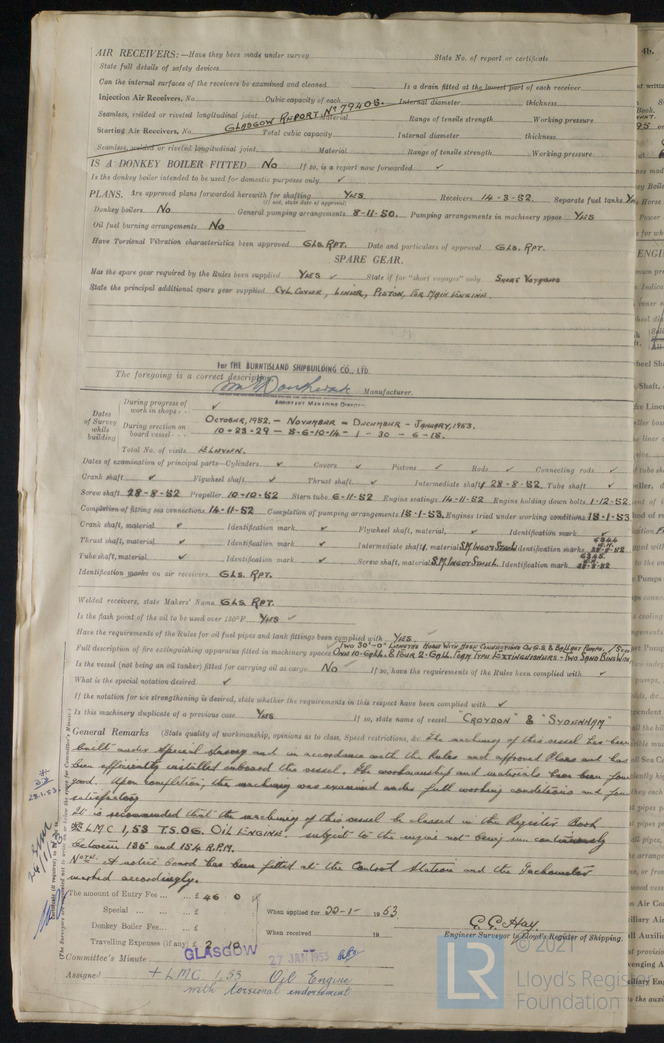 AIR RECEIVERS:—Have they been made under survey State No. of report or certificate
State full details of safety devices
Can the internal surfaces of the receivers be examined and cleaned Is a drain fitted at the lowest part of each receiver
Injection Air Receivers, No. Cubic capacity of each Internal diameter thickness
Seamless, welded or riveted longitudinal joint Material Range of tensile strength Working pressure
GLASGOW REPORT Nº 79406.
Starting Air Receivers, No. Total cubic capacity Internal diameter thickness
Seamless, welded or riveted longitudinal joint Material Range of tensile strength Working pressure
IS A DONKEY BOILER FITTED No If so, is a report now forwarded ✓
Is the donkey boiler intended to be used for domestic purposes only ✓
PLANS. Are approved plans forwarded herewith for shafting YES Receivers 14-3-52. Separate fuel tanks
(If not, state date of approval)
Donkey boilers No General pumping arrangements 8-11-50. Pumping arrangements in machinery space YES
Oil fuel burning arrangements No
Have Torsional Vibration characteristics been approved GLS. RPT. Date and particulars of approval GLS. RPT.
SPARE GEAR.
Has the spare gear required by the Rules been supplied YES ✓ State if for "short voyages" only SHORT VOYAGES
State the principal additional spare gear supplied CYL COVER, LINER, PISTON, FOR MAIN ENGINE.
For THE BURNTISLAND SHIPBUILDING CO., LTD.
The foregoing is a correct description,
Manufacturer.
ASSISTANT MANAGING DIRECTOR
Dates of Survey while building
During progress of work in shops - - ✓
During erection on board vessel - - - OCTOBER, 1952. - NOVEMBER - DECEMBER - JANUARY, 1953.
10-23-29 - 5-6-10-14- 1-30-6-18.
Total No. of visits ELEVEN.
Dates of examination of principal parts—Cylinders ✓ Covers ✓ Pistons ✓ Rods ✓ Connecting rods ✓
Crank shaft ✓ Flywheel shaft ✓ Thrust shaft ✓ Intermediate shaft 28-8-52. Tube shaft ✓
Screw shaft 28-8-52 Propeller 10-10-52 Stern tube 6-11-52 Engine seatings 14-11-52 Engine holding down bolts 1-12-52
Completion of fitting sea connections 14-11-52 Completion of pumping arrangements 18-1-53. Engines tried under working conditions 18-1-53
Crank shaft, material ✓ Identification mark ✓ Flywheel shaft, material ✓ Identification mark ✓
Thrust shaft, material ✓ Identification mark ✓ Intermediate shaft, material S.M. INGOT STEEL Identification marks 28-8-52
Tube shaft, material ✓ Identification mark ✓ Screw shaft, material S.M. INGOT STEEL. Identification mark 28-8-52
Identification marks on air receivers GLS. RPT.
Welded receivers, state Makers' Name GLS RPT.
Is the flash point of the oil to be used over 150°F. YES ✓
Have the requirements of the Rules for oil fuel pipes and tank fittings been complied with YES.
Full description of fire extinguishing apparatus fitted in machinery spaces TWO 30'-0" LENGTHS HOSE WITH HOSE CONNECTIONS ON G.S. & BALLAST PUMPS.
ONE 10-GALL. & FOUR 2-GALL. FOAM TYPE EXTINGUISHERS - TWO SAND BINS WITH
Is the vessel (not being an oil tanker) fitted for carrying oil as cargo No ✓ If so, have the requirements of the Rules been complied with ✓
What is the special notation desired ✓
If the notation for ice strengthening is desired, state whether the requirements in this respect have been complied with ✓
Is this machinery duplicate of a previous case YES If so, state name of vessel "CROYDON" & "SYDENHAM"
General Remarks (State quality of workmanship, opinions as to class, Speed restrictions, &c. The machinery of this vessel has been
built under special survey and in accordance with the Rules and approved Plans and has
been efficiently installed inboard the vessel. The workmanship and materials have been found
good. Upon completion, the machinery was examined under full working conditions and found
satisfactory.
It is recommended that the machinery of this vessel be classed in the Register Book
✠ L.M.C. 1,53 T.S. O.G. OIL ENGINE. subject to the engine not being run continuously
between 135 and 154 R.P.M.
NOTE. A notice board has been fitted at the Control Station and the Tachometer
marked accordingly.
The amount of Entry Fee ... £ 46 0
Special ... ... ... £
Donkey Boiler Fee... ... £
Travelling Expenses (if any) £ 2 18
When applied for 22-1- 1953
When received 19
C. C. Hay
Engineer Surveyor to Lloyd's Register of Shipping.
Committee's Minute GLASGOW 27 JAN 1953
Assigned + LMC 1,53 Oil Engine
with torsional endorsement
28.1.53
© 2021
LR
Lloyd's Register
Foundation